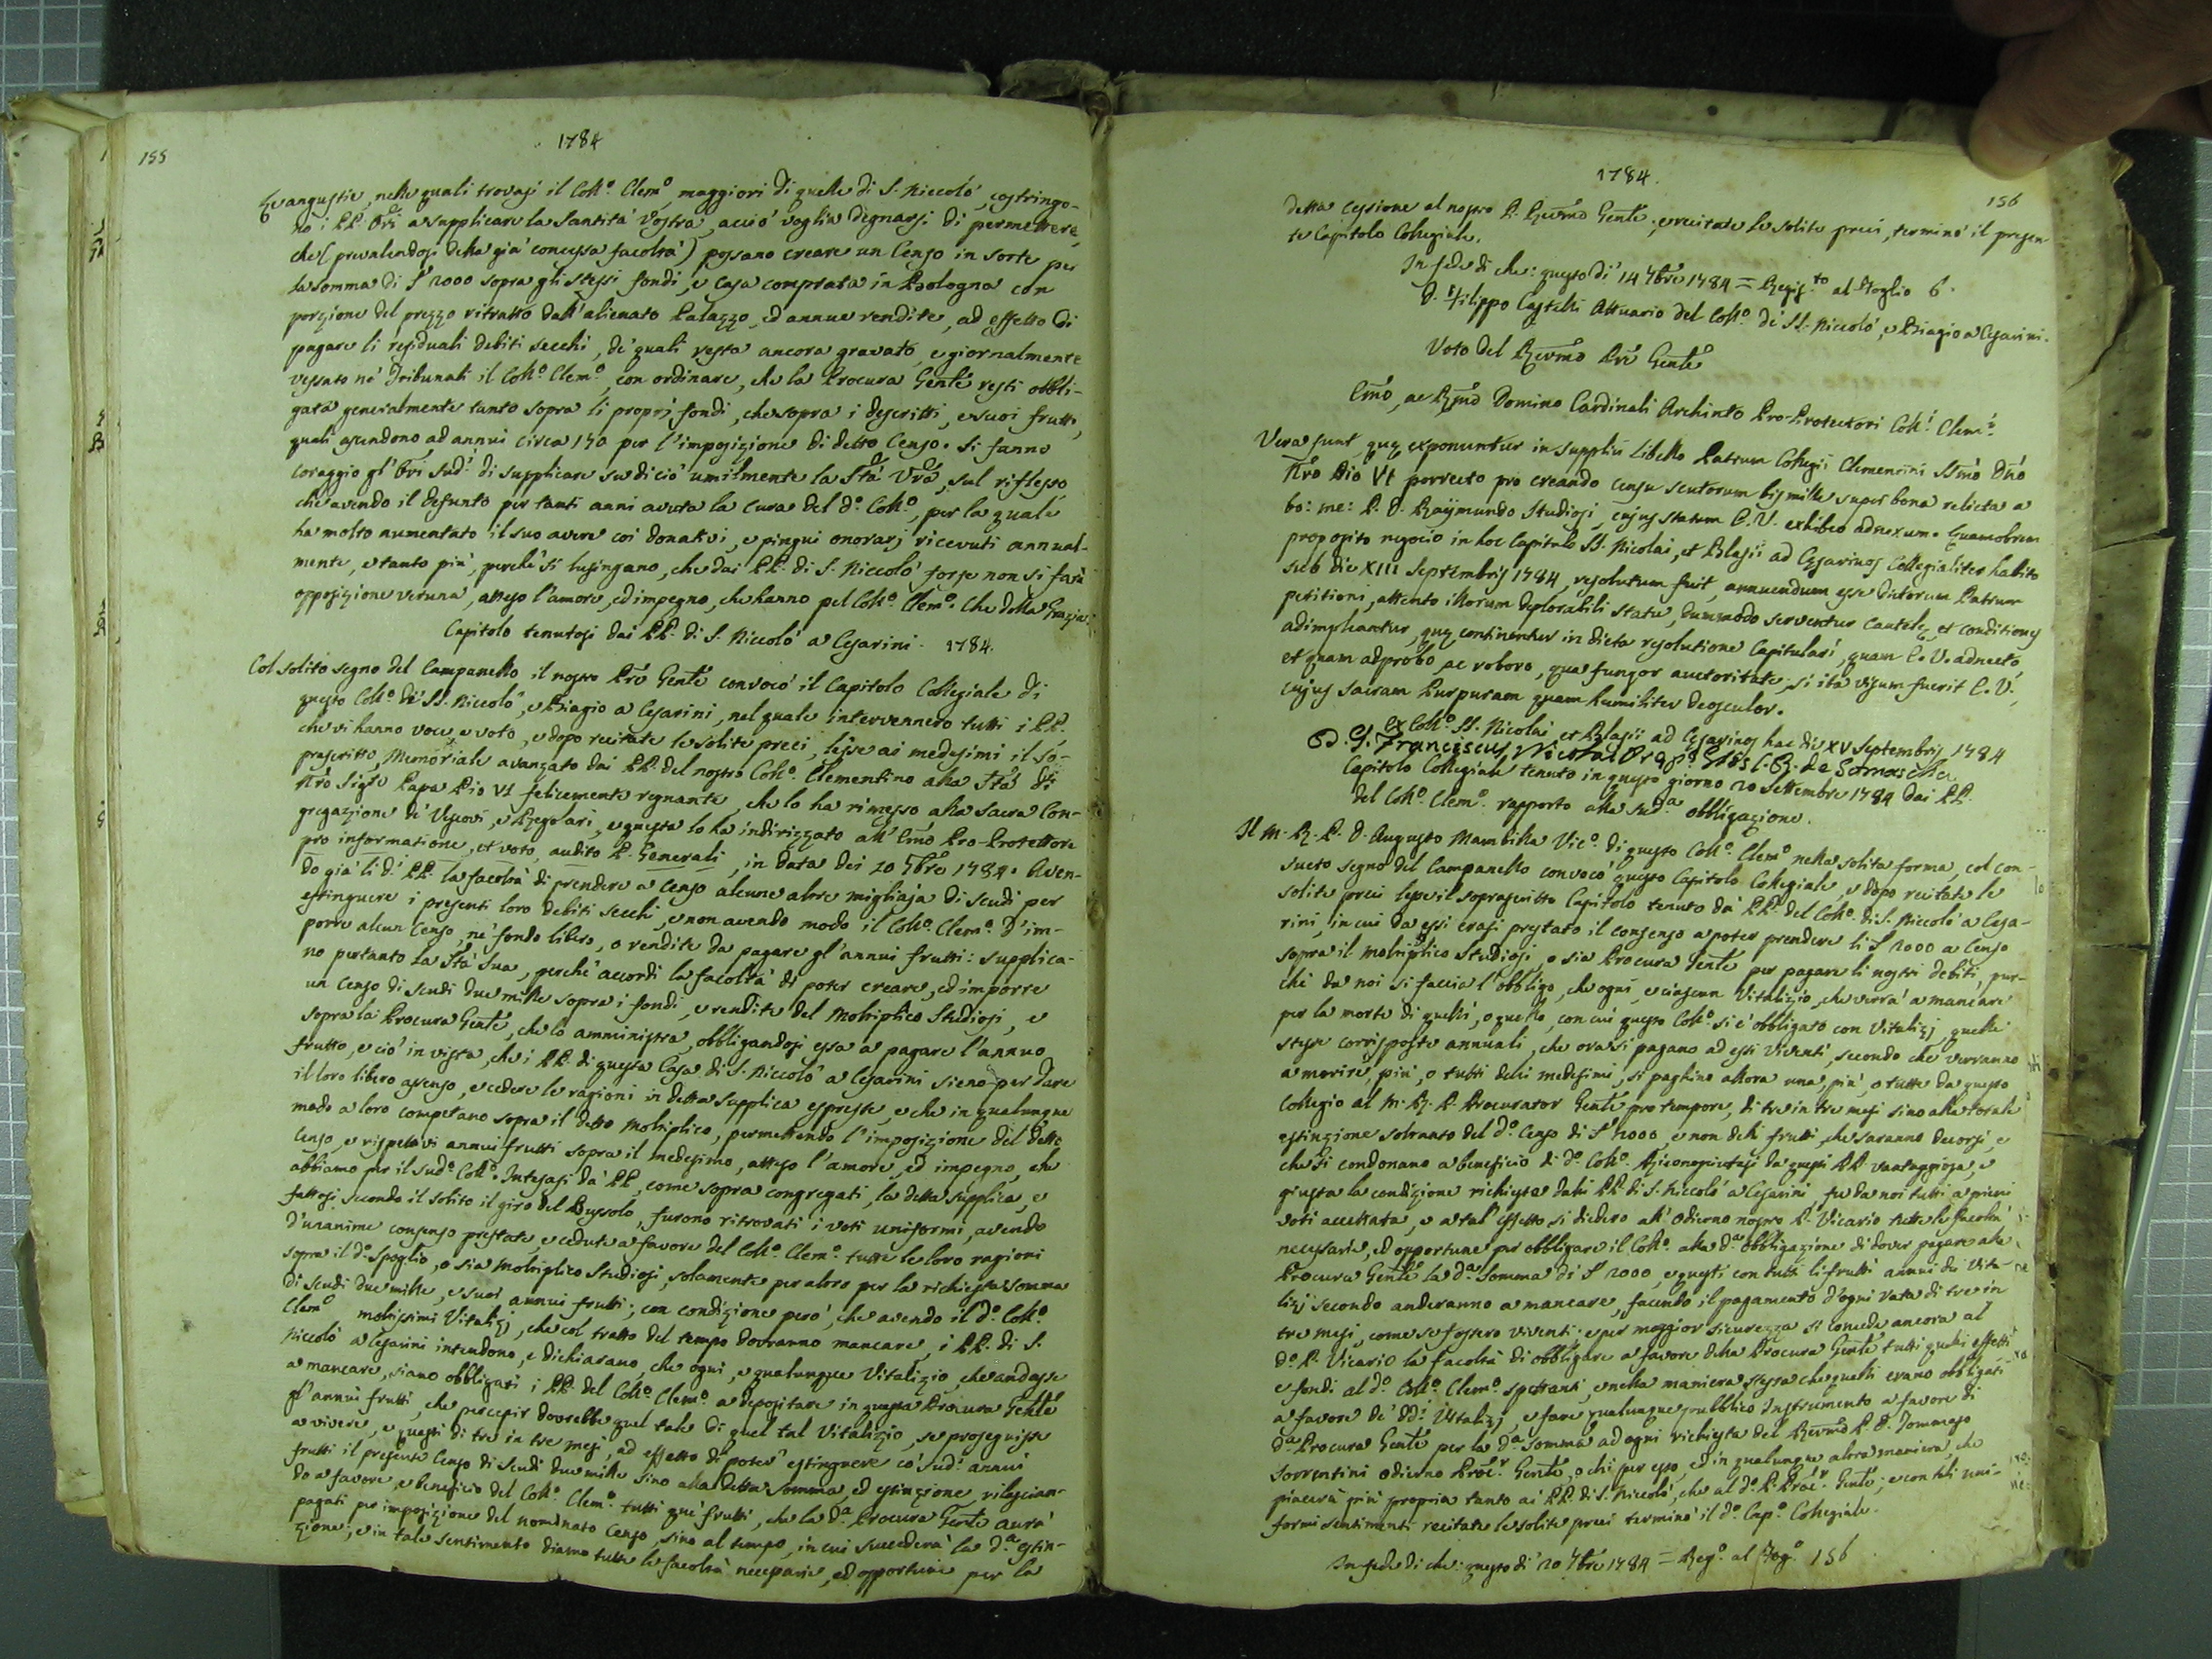 155
1784
Le angustie, nelle quali trovasi il Coll.º Clem.º, maggiori di quelle di S. Niccolò, costringo-
no i PP. Ori a supplicare la Santità Vostra, acciò voglia degnarsi di permettere,
che (prevalendosi della già concessa facoltà) possano creare un Censo in sorte per
la somma di S 2000 sopra gli stessi fondi, e Casa comprata in Bologna con
porzione del prezzo ritratto dall' alienato Palazzo, ed annue rendite, ad effetto di
pagare li residuali debiti secchi, de' quali resta ancora gravato, e giornalmente
vessato ne' Tribunali il Coll.º Clem.º, con ordinare, che la Procura Genle resti obbli-
gata generalmente tanto sopra li proprj fondi, che sopra i descritti, e suoi frutti,
quali ascendono ad annui circa 130 per l'imposizione di detto Censo. Si fanno
coraggio gl' Ori sud.i di supplicare su di ciò umilmente la Stà Vra, sul riflesso
che avendo il defunto per tanti anni avuta la cura del d.º Coll.º, per la quale
ha molto aumentato il suo avere coi donativi, e pingui onorarj ricevuti annual-
mente, e tanto più, perchè si lusingano, che dai PP. di S. Niccolò forse non si farà
opposizione veruna, atteso l'amore, ed impegno, che hanno pel Coll.º Clem.º. Che della Grazia
Capitolo tenutosi dai PP. di S. Niccolò a Cesarini. 1784.
Col solito segno del Campanello il nostro Pre Genle convocò il Capitolo Collegiale di
questo Coll.º de' SS. Niccolò, e Biagio a Cesarini, nel quale intervennero tutti i PP.
che vi hanno voce, e voto, e dopo recitate le solite preci, lesse ai medesimi il so-
prascritto Memoriale avanzato dai PP. del nostro Coll.º Clementino alla Stà di
Nro Sigre Papa Pio VI felicemente regnante, che lo ha rimesso alla Sacra Con-
gregazione de' Vescovi, e Regolari, e questa lo ha indirizzato all' Emo Pro-Protettore
pro informatione, et voto, audito P. Generali, in data dei 10 7bre 1784. Aven-
do già li d.i PP. la facoltà di prendere a Censo alcune altre migliaja di scudi per
estinguere i presenti loro debiti secchi, e non avendo modo il Coll.º Clem.º d'im-
porre alcun Censo, nè fondo libero, o rendite da pagare gl' annui frutti: supplica-
no pertanto la Stà Sua, perchè accordi la facoltà di poter creare, ed imporre
un Censo di scudi due mille sopra i fondi, e rendite del Moltiplico Studiosi, e
sopra la Procura Genle, che lo amministra, obbligandosi essa a pagare l'annuo
frutto, e ciò in vista, che i PP. di questa Casa di S. Niccolò a Cesarini sieno per dare
il loro libero assenso, e cedere le ragioni in detta supplica espresse, e che in qualunque
modo a loro competano sopra il detto Moltiplico, permettendo l'imposizione del detto
Censo, e rispettivi annui frutti sopra il medesimo, atteso l'amore, ed impegno, che
abbiamo per il sud.º Coll.º. Intesasi da' PP., come sopra congregati, la detta supplica, e
fattosi secondo il solito il giro del Bussolo, furono ritrovati i voti uniformi, avendo
d'unanime consenso prestato, e cedute a favore del Coll.º Clem.º tutte le loro ragioni
sopra il d.º Spoglio, o sia Moltiplico Studiosi, solamente per altro per la richiesta somma
di scudi due mille, e suoi annui frutti; con condizione però, che avendo il d.º Coll.º
Clem.º moltissimi Vitalizj, che col tratto del tempo dovranno mancare, i PP. di S.
Niccolò a Cesarini intendono, e dichiarano, che ogni, e qualunque Vitalizio, che andasse
a mancare, siano obbligati i PP. del Coll.º Clem.º a depositare in questa Procura Genle
gl' annui frutti, che percepir dovrebbe quel tale di quel tal Vitalizio, se proseguisse
a vivere, e questi di tre in tre mesi, ad effetto di poter estinguere co' sud.i annui
frutti il presente Censo di scudi due mille sino alla detta somma, ed estinzione, rilascian-
do a favore, e beneficio del Coll.º Clem.º tutti que' frutti, che la d.ª Procura Genle avrà
pagati per imposizione del nominato Censo, sino al tempo, in cui succederà la d.ª estin-
zione; e in tale sentimento diamo tutte le facoltà necessarie, ed opportune per la
1784.
156
detta cessione al nostro P. Revmo Genle, e recitate le solite preci, terminò il presen-
te Capitolo Collegiale.
In fede di che: questo dì 14 7bre 1784 = Regis.to al Foglio 6.
D. Filippo Castelli Attuario del Coll.º de' SS. Niccolò, e Biagio a Cesarini.
Voto del Revmo Pre Genle
Emo, ac Rmo Domino Cardinali Archinto Pro-Protectori Coll.i Clem.i
Vera sunt, quę exponuntur in supplici Libello Patrum Collegii Clementini SSmo Dno
Nro Pio VI porrecto pro creando censu scutorum bis mille super bona relicta a
bo: me: P. D. Raymundo Studiosi, cujus statum E. V. exhibeo adnexum. Quamobrem
proposito negocio in hoc Capitulo SS. Nicolai, et Blasii ad Cęsarinos Collegialiter habito
sub die XIII Septembris 1784, resolutum fuit, annuendum esse dictorum Patrum
petitioni, attento illorum deplorabili statu, dummodo serventur cautelę, et conditiones
adimpleantur, quę continentur in dicta resolutione Capitulari, quam E. V. adnecto,
et quam adprobo, ac roboro, qua fungor auctoritate, si ita visum fuerit E. V.,
cujus sacram Purpuram quam humiliter deosculor.
Ex Coll.º SS. Nicolai, et Blasii ad Cęsarinos hac die XV Septembris 1784
Franciscus Nicolai de Somascha
Capitolo Collegiale tenuto in questo giorno 20 Settembre 1784 dai PP.
del Coll.º Clem.º rapporto alla sud.ª obbligazione.
Il M. R. P. D. Augusto Mambilla Vic.º di questo Coll.º Clem.º nella solita forma, col con-
sueto segno del Campanello convocò questo Capitolo Collegiale, e dopo recitate le
solite preci lesse il soprascritto Capitolo tenuto da' PP. del Coll.º di S. Niccolò a Cesa-
rini, in cui da essi erasi prestato il consenso a poter prendere li S 2000 a Censo
sopra il Moltiplico Studiosi, o sia Procura Genle per pagare li nostri debiti, pur-
chè da noi si faccia l'obbligo, che ogni, e ciascun Vitalizio, che verrà a mancare
per la morte di quelli, o quello, con cui questo Coll.º si è obbligato con Vitalizj, quelle
stesse corrisposte annuali, che ora si pagano ad essi viventi, secondo che verranno
a morire, più, o tutti delli medesimi, si paghino allora una, più, o tutte da questo
Collegio al M. R. P. Procurator Genle pro tempore, di tre in tre mesi sino alla totale
estinzione soltanto del d.º Censo di S 2000, e non delli frutti, che saranno decorsi, e
che si condonano a beneficio di d.º Coll.º. Riconosciutasi da questi PP. vantaggiosa, e
giusta la condizione richiesta dalli PP. di S. Niccolò a Cesarini, fu da noi tutti a pieni
voti accettata, e a tal effetto si diedero all' odierno nostro P. Vicario tutte le facoltà
necessarie, ed opportune per obbligare il Coll.º alla d.ª obbligazione di dover pagare alla
Procura Genle la d.ª somma di S 2000, e questi con tutti li frutti annui dei Vita-
lizj secondo anderanno a mancare, facendo il pagamento d'ogni rata di tre in
tre mesi, come se fossero viventi; e per maggior sicurezza si concede ancora al
d.º P. Vicario la facoltà di obbligare a favore della Procura Genle tutti quelli effetti
e fondi al d.º Coll.º Clem.º spettanti, e nella maniera stessa che quelli erano obbligati
a favore de' dd.i Vitalizj, e fare qualunque pubblico Instrumento a favore di
d.ª Procura Genle per la d.ª somma ad ogni richiesta del Revmo P. D. Tommaso
Sorrentini odierno Proc.r Genle, o chi per esso, ed in qualunque altra maniera, che
piacerà più propria tanto ai PP. di S. Niccolò, che al d.º P. Proc.r Genle; e con tali uni-
formi sentimenti recitate le solite preci terminò il d.º Cap.º Collegiale.
In fede di che: questo dì 20 7bre 1784 = Reg.º al Fog.º 156